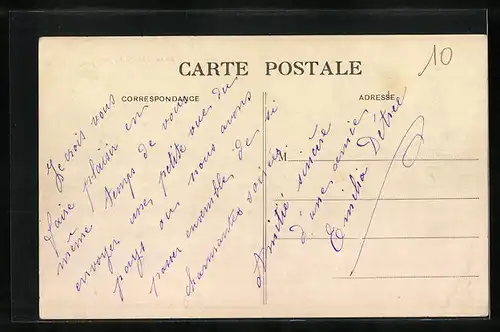 10
CARTE POSTALE
CORRESPONDANCE
ADRESSE
Je crois vous
faire plaisir en
même temps de vous
envoyer une petite vue du
pays ou nous avons
passer ensembles de si
charmantes soirées
M
Amitié sincère
d'une amie
Emilia Détrée